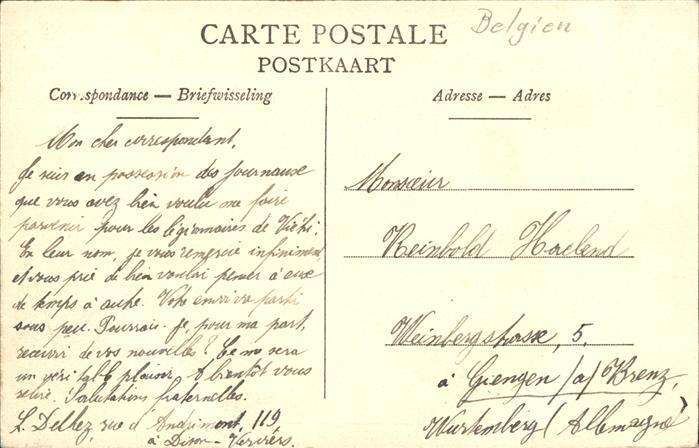 CARTE POSTALE
Belgien
POSTKAART
Correspondance — Briefwisseling
Mon cher correspondant,
Je suis en possession des journaux
que vous avez bien voulu me faire
parvenir pour les légionnaires de
En leur nom, je vous remercie infiniment
et vous prie de bien vouloir penser à eux
de temps à autre. Votre envoi va partir
sous peu. Pourrais-je, pour ma part,
recevoir de vos nouvelles? Ce me sera
un véritable plaisir. A bientôt vous
Salutations fraternelles.
L. Delhez, rue d'Andrimont, 119
à Dison-Verviers.
Adresse — Adres
Monsieur
Reinbold
Weinbergstrasse, 5,
à Giengen /a/ Krenz,
Wurtemberg (Allemagne)